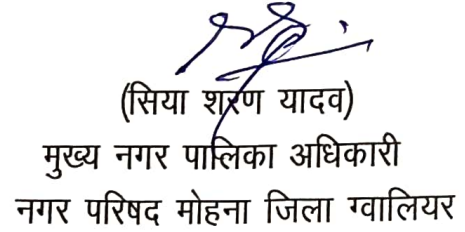 (सिया शरण यादव)
मुख्य नगर पालिका अधिकारी
नगर परिषद मोहना जिला ग्वालियर